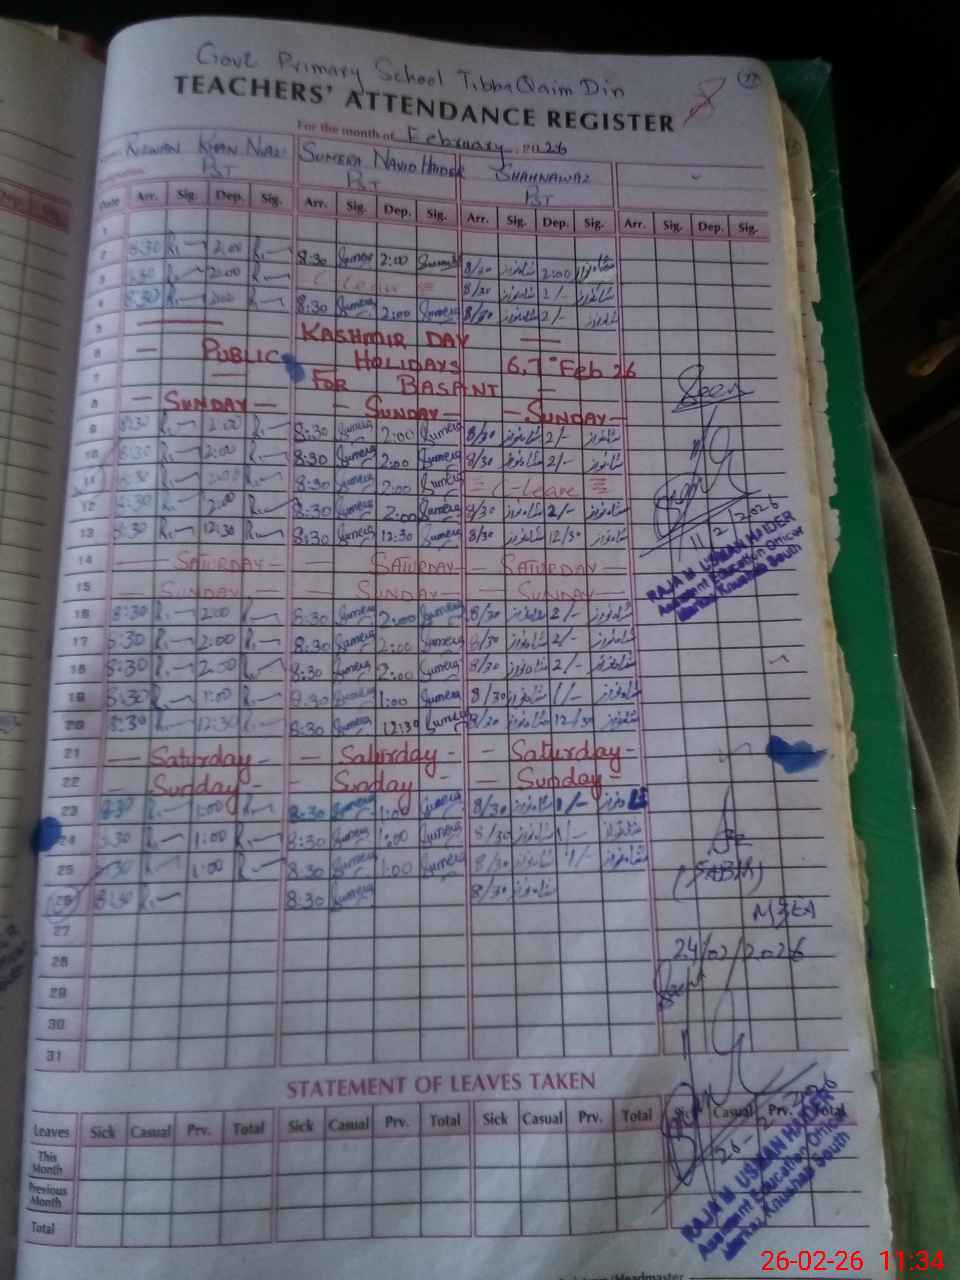 Govt Primary School Tibba Qaim Din
TEACHERS' ATTENDANCE REGISTER
For the month of February, 2026
Rizwan Khan Niazi Sumera Navid Haider Shahnawaz
PST PST PST
Date Arr. Sig. Dep. Sig. Arr. Sig. Dep. Sig. Arr. Sig. Dep. Sig. Arr. Sig. Dep. Sig.
1
2 8:30 2:00 8:30 Sumera 2:00 Sumera 8/30 شاہنواز 2:00 شاہنواز
3 8:30 2:00 C Leave 8/30 شاہنواز 2/- شاہنواز
4 8:30 2:00 8:30 Sumera 2:00 Sumera 8/30 شاہنواز 2/- شاہنواز
5 KASHMIR DAY
6 PUBLIC HOLIDAYS 6,7 Feb 26
7 FOR BASANT
8 SUNDAY SUNDAY SUNDAY
9 8:30 2:00 8:30 Sumera 2:00 Sumera 8/30 شاہنواز 2/- شاہنواز
10 8:30 2:00 8:30 Sumera 2:00 Sumera 8/30 شاہنواز 2/- شاہنواز
11 8:30 2:00 8:30 Sumera 2:00 Sumera C-Leave
12 8:30 2:00 8:30 Sumera 2:00 Sumera 8/30 شاہنواز 2/- شاہنواز
13 8:30 12:30 8:30 Sumera 12:30 Sumera 8/30 شاہنواز 12/30 شاہنواز
14 SATURDAY SATURDAY SATURDAY
15 SUNDAY SUNDAY SUNDAY
16 8:30 2:00 8:30 Sumera 2:00 Sumera 8/30 شاہنواز 2/- شاہنواز
17 8:30 2:00 8:30 Sumera 2:00 Sumera 8/30 شاہنواز 2/- شاہنواز
18 8:30 2:00 8:30 Sumera 2:00 Sumera 8/30 شاہنواز 2/- شاہنواز
19 8:30 1:00 8:30 Sumera 1:00 Sumera 8/30 شاہنواز 1/- شاہنواز
20 8:30 12:30 8:30 Sumera 12:30 Sumera 8/30 شاہنواز 12/30 شاہنواز
21 Saturday Saturday Saturday
22 Sunday Sunday Sunday
23 8:30 1:00 8:30 Sumera 1:00 Sumera 8/30 شاہنواز 1/- شاہنواز
24 8:30 1:00 8:30 Sumera 1:00 Sumera 8/30 شاہنواز 1/- شاہنواز
25 8:30 1:00 8:30 Sumera 1:00 Sumera 8/30 شاہنواز 1/- شاہنواز
26 8:30 8:30 Sumera 8/30 شاہنواز
27
28
29
30
31
Seen
11/2/2026
RAJA M. USMAN HAIDER
Assistant Education Officer
Markaz Khushab South
(SABA)
MEA
24/02/2026
Seen
STATEMENT OF LEAVES TAKEN
Leaves Sick Casual Prv. Total Sick Casual Prv. Total Sick Casual Prv. Total Sick Casual Prv. Total
This Month
Previous Month
Total
RAJA M. USMAN HAIDER
Assistant Education Officer
Markaz Khushab South
26-02-26 11:34